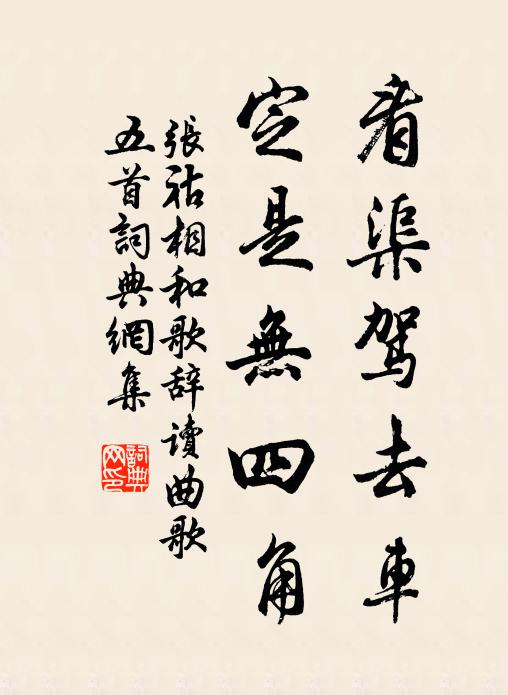 看渠驾去車
定是無四角
張祜相和歌辞讀曲歌
五首詞典網集
詞典网印